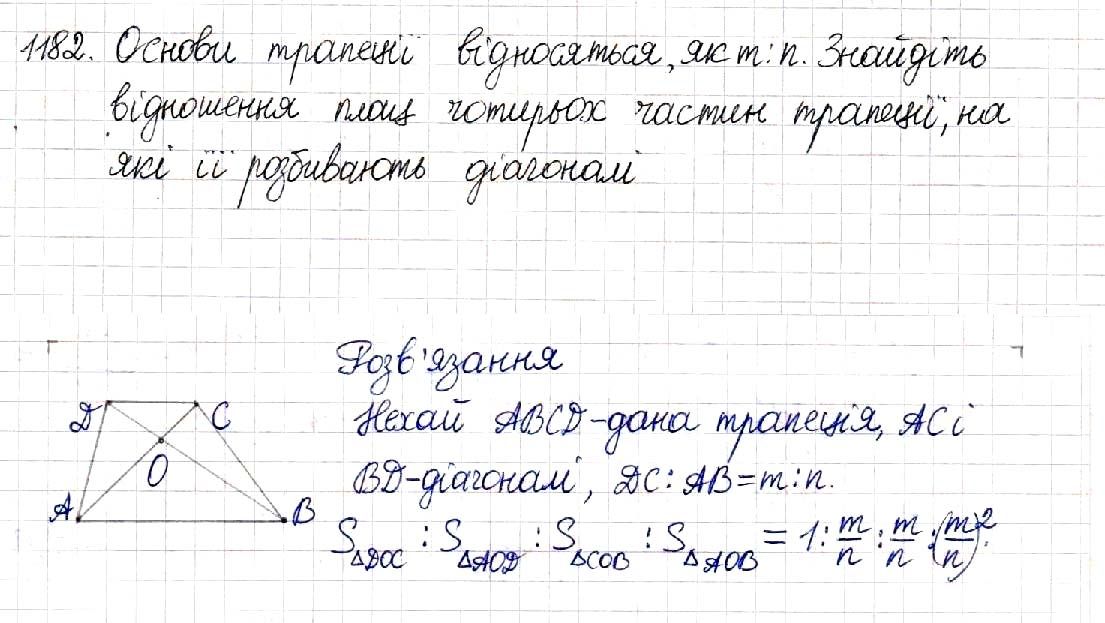 1182. Основи трапеції відносяться, як m:n. Знайдіть
відношення площ чотирьох частин трапеції, на
які її розбивають діагоналі
Розв'язання
Нехай ABCD-дана трапеція, AC і
BD-діагоналі, DC:AB=m:n.
S△DOC : S△AOD : S△COB : S△AOB = 1 : m/n : m/n : (m/n)².
D
C
O
A
B